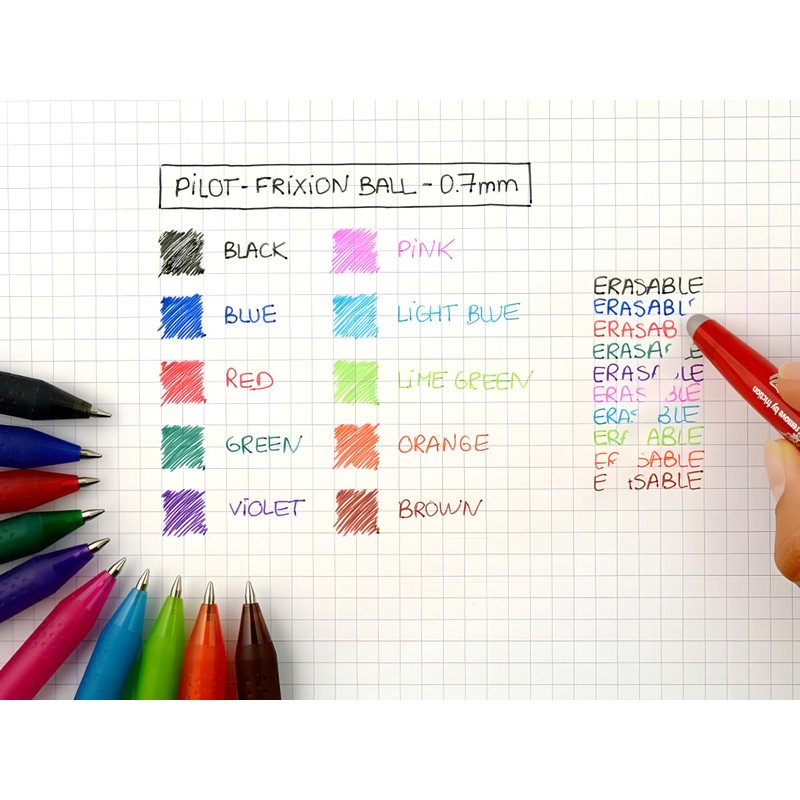 PILOT - FRIXION BALL - 0.7mm
BLACK
PINK
BLUE
LIGHT BLUE
RED
LIME GREEN
GREEN
ORANGE
VIOLET
BROWN
ERASABLE
ERASABL
ERASAB
ERASA LE
ERAS BLE
ERAS BLE
ERAS BLE
ER ABLE
ER SABLE
E SABLE
remove by friction